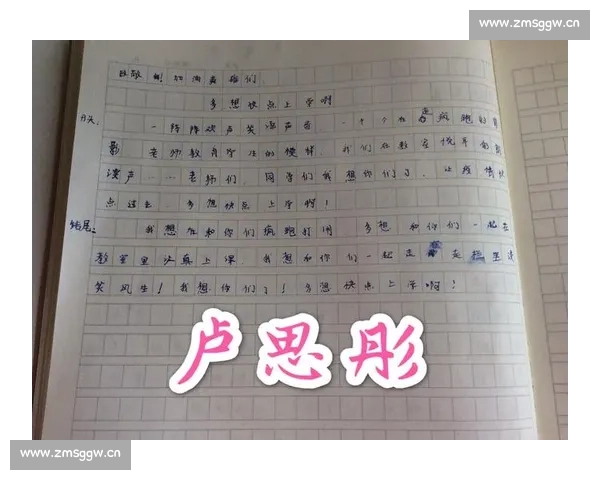 www.zmsggw.cn
多想快点上学啊
开头:
一阵阵欢声笑语声音 一个个在疯跑的背
影 老师教育学生的模样 我们在教室悦耳的朗
读声……老师们、同学们我想你们了、让疫情快
点过去 多想快点上学啊!
结尾:
我想在和你们疯跑打闹 多想和你们一起去
教室里认真上课 我想和你们一起走
笑风生!我想你们了!多想快点上学啊!
卢思彤
www.zmsggw.cn